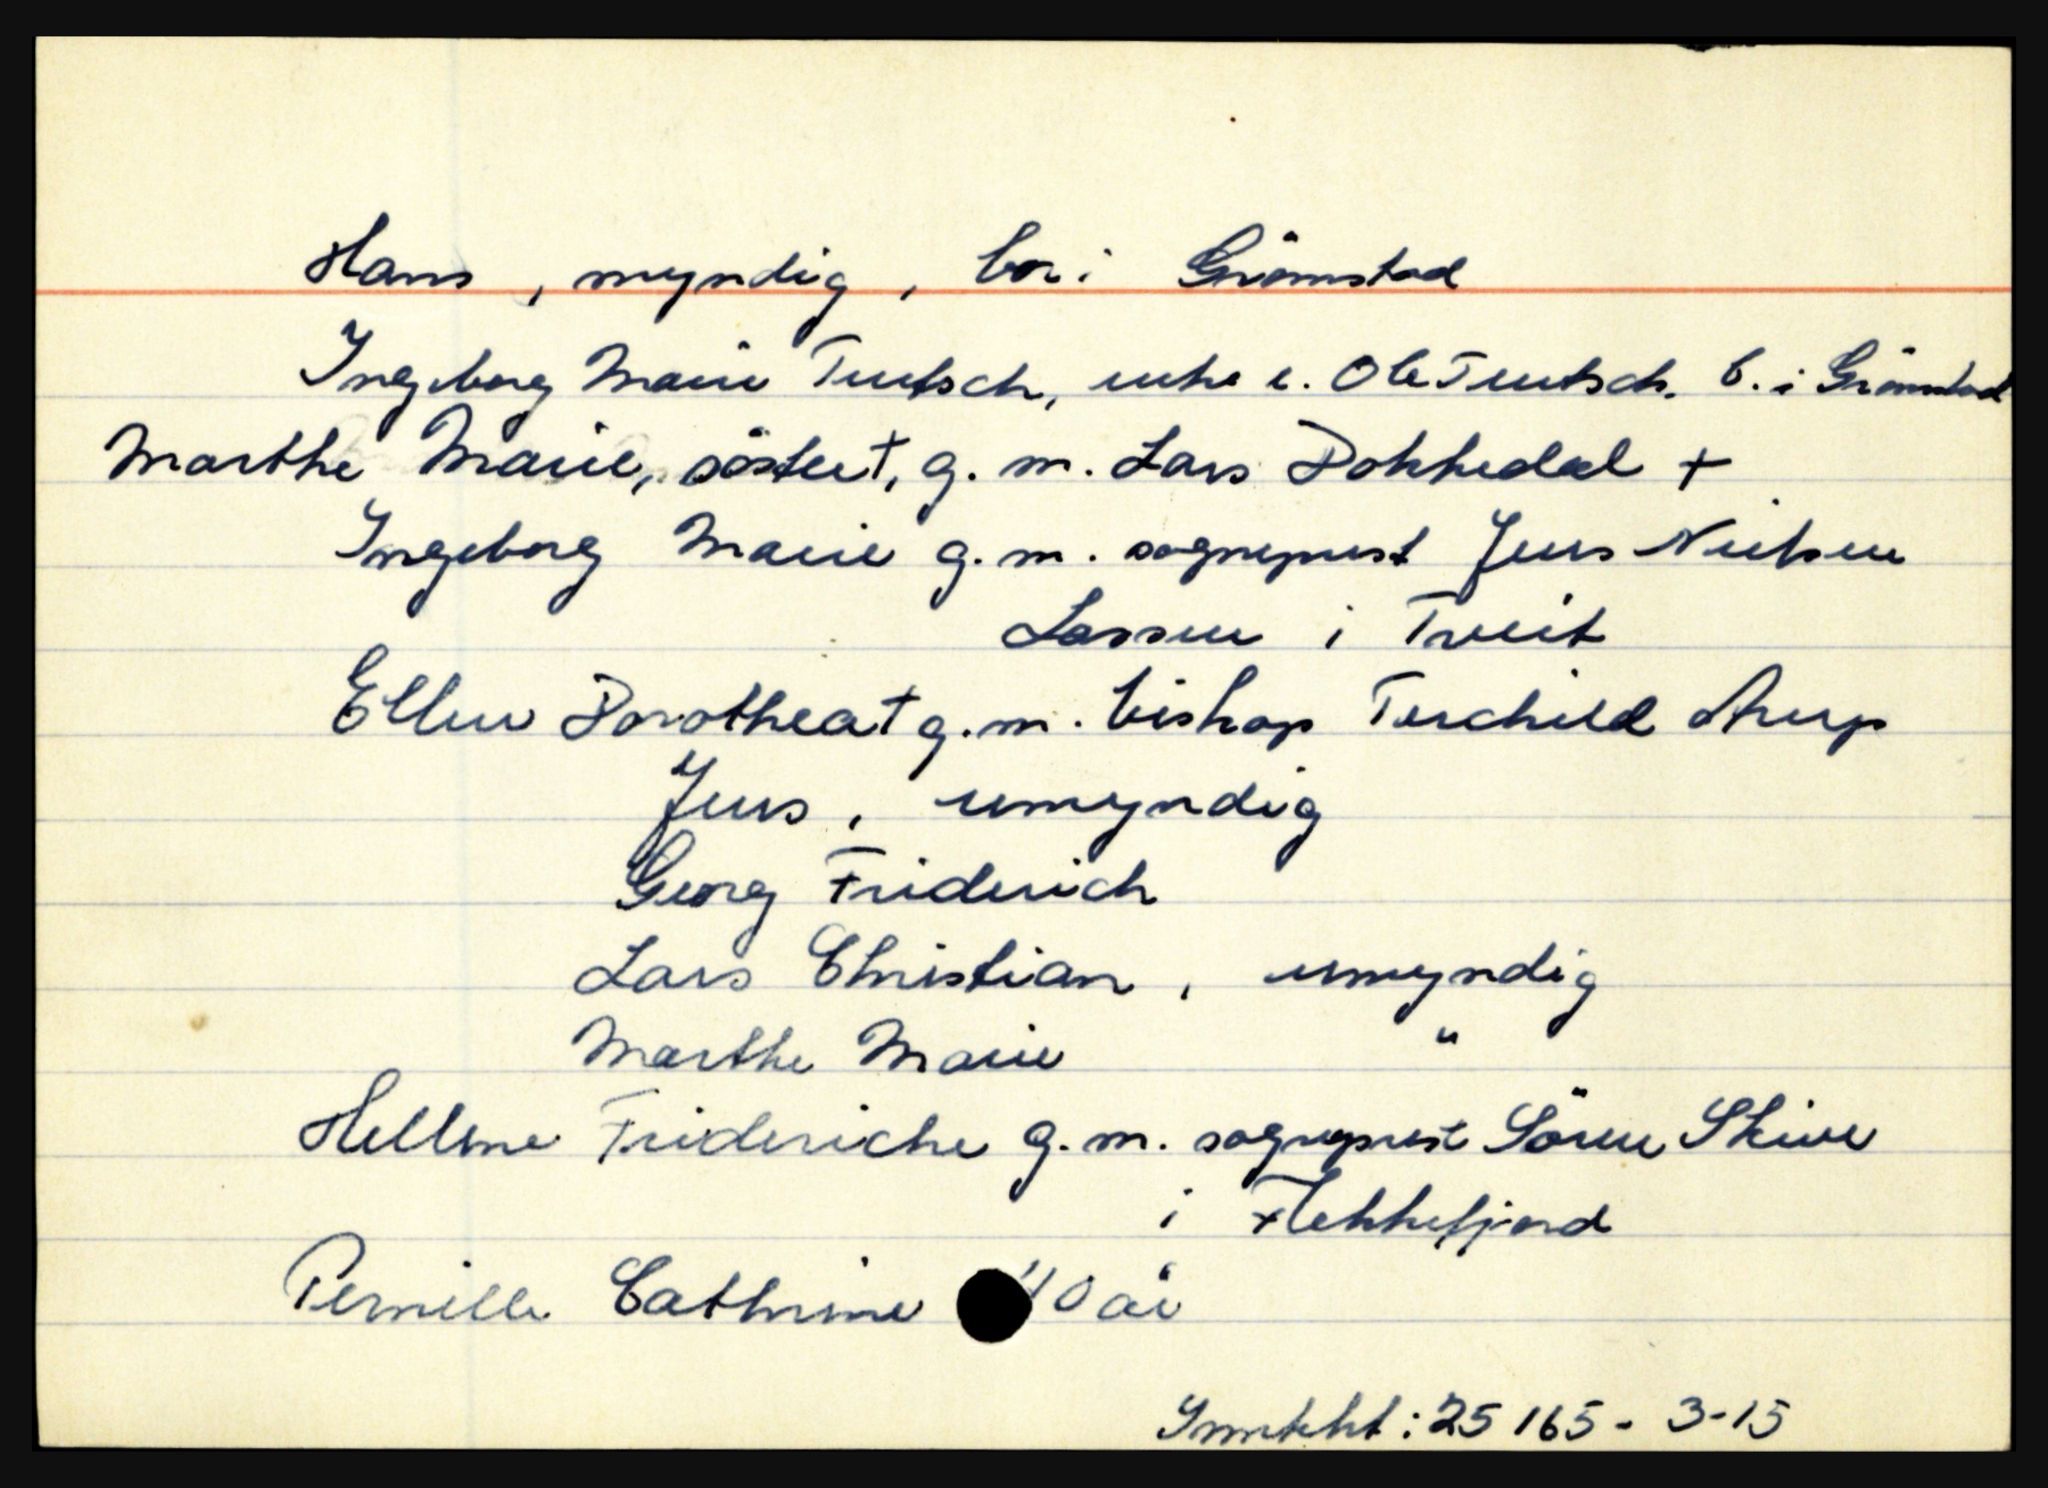 Hans, myndig, bor i Grömstad
Ingeborg Marie Tuetsch, enke e. Ole Tuetsch. b. i Grömstad
Marthe Marie, söster †, g. m. Lars Dokkedal +
Ingeborg Marie g. m. sogneprest Jens Nielsen
Lassen i Tveit
Ellen Dorothea † g. m. biskop Terchild
Jens, umyndig
Georg Friderich
Lars Christian, umyndig
Marthe Marie "
Hellene Frideriche g. m. sogneprest Sören Skive
i Flekkefjord
Pernille Cathrine 40 år
Inntekt: 25 165 - 3-15